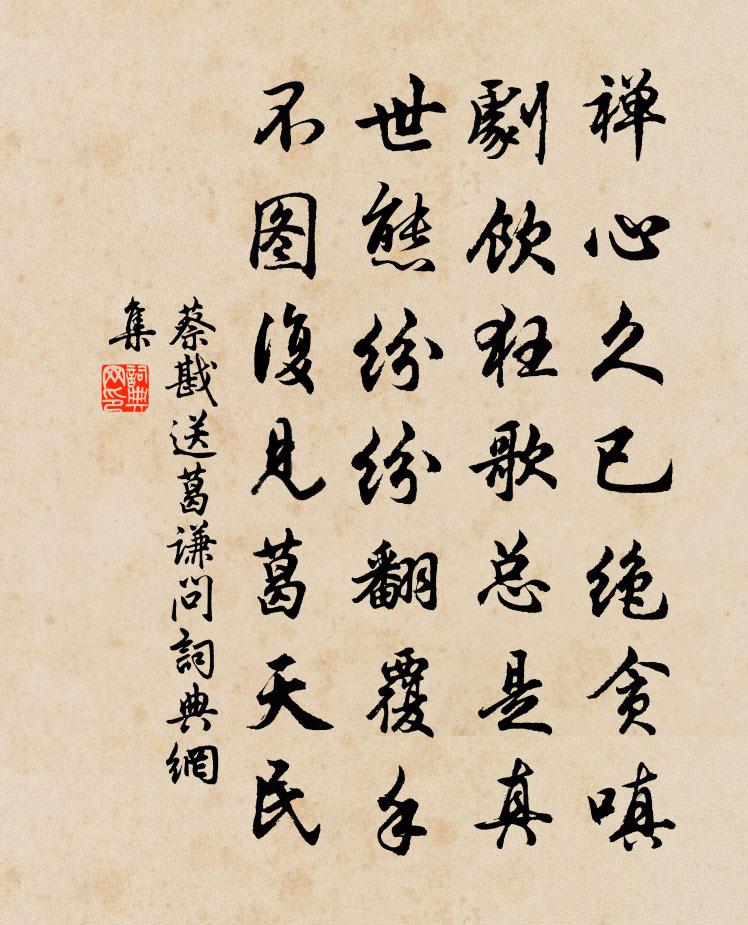 禅心久已绝贪嗔
劇飲狂歌总是真
世態纷纷翻覆手
不图復见葛天民
蔡戡送葛谦问詞典網
集
詞典网印